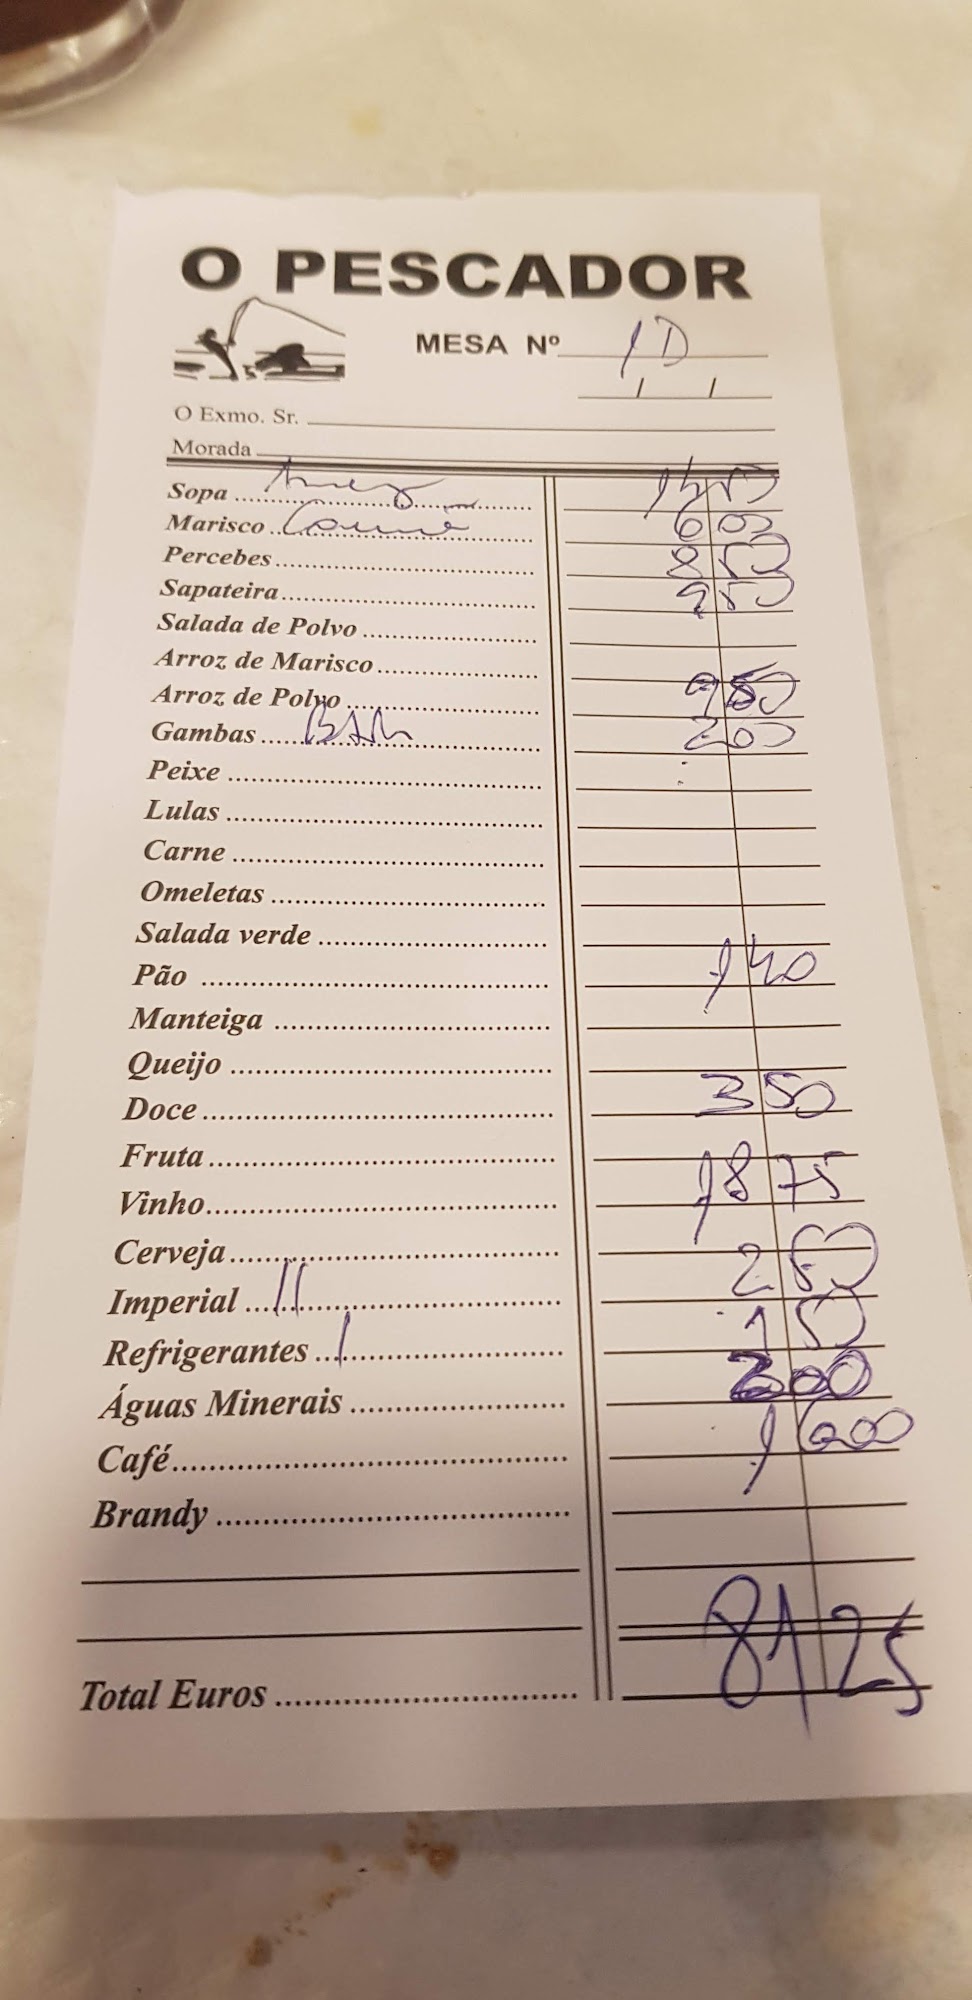 O PESCADOR
MESA Nº 1D
O Exmo. Sr.
Morada
Sopa
Marisco 6 00
Percebes 8 50
Sapateira 9 50
Salada de Polvo
Arroz de Marisco
Arroz de Polvo 9 50
Gambas 2 00
Peixe
Lulas
Carne
Omeletas
Salada verde
Pão 1 40
Manteiga
Queijo
Doce 3 50
Fruta
Vinho 18 75
Cerveja
Imperial 11 2 60
Refrigerantes 1 1 50
Águas Minerais 2 00
Café
Brandy
Total Euros 81 25